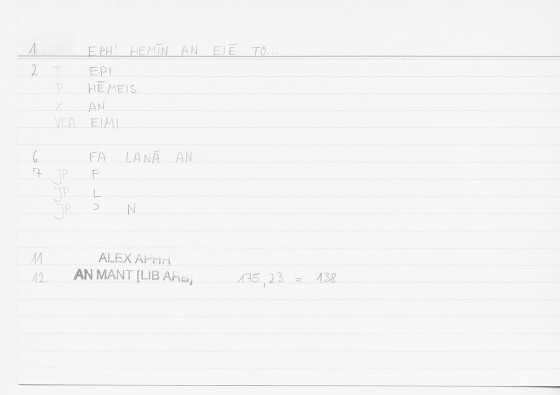 1 EPH' HEMĪN AN EIĒ TO...
2 T EPI
P HĒMEIS
X AN
VCA EIMI
6 FA LANĀ AN
7 JP F
JP L
JP ʾ N
11 ALEX APHR
12 AN MANT [LIB ARB, 175,23 = 138